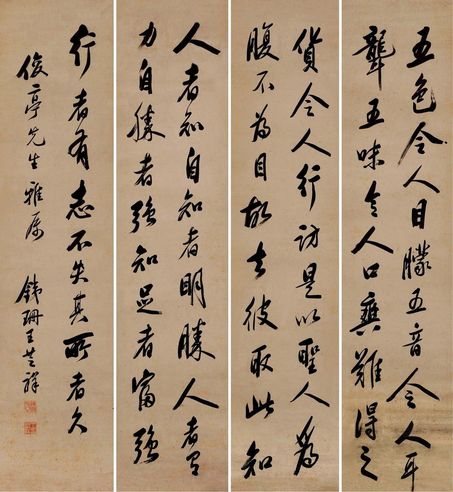 五色令人目朦五音令人耳
聾五味令人口爽難得之
貨令人行妨是以聖人為
腹不為目故去彼取此知
人者知自知者明勝人者有
力自勝者強知足者富強
行者有志不失其所者久
俊亭先生雅屬 銕珊王芝祥